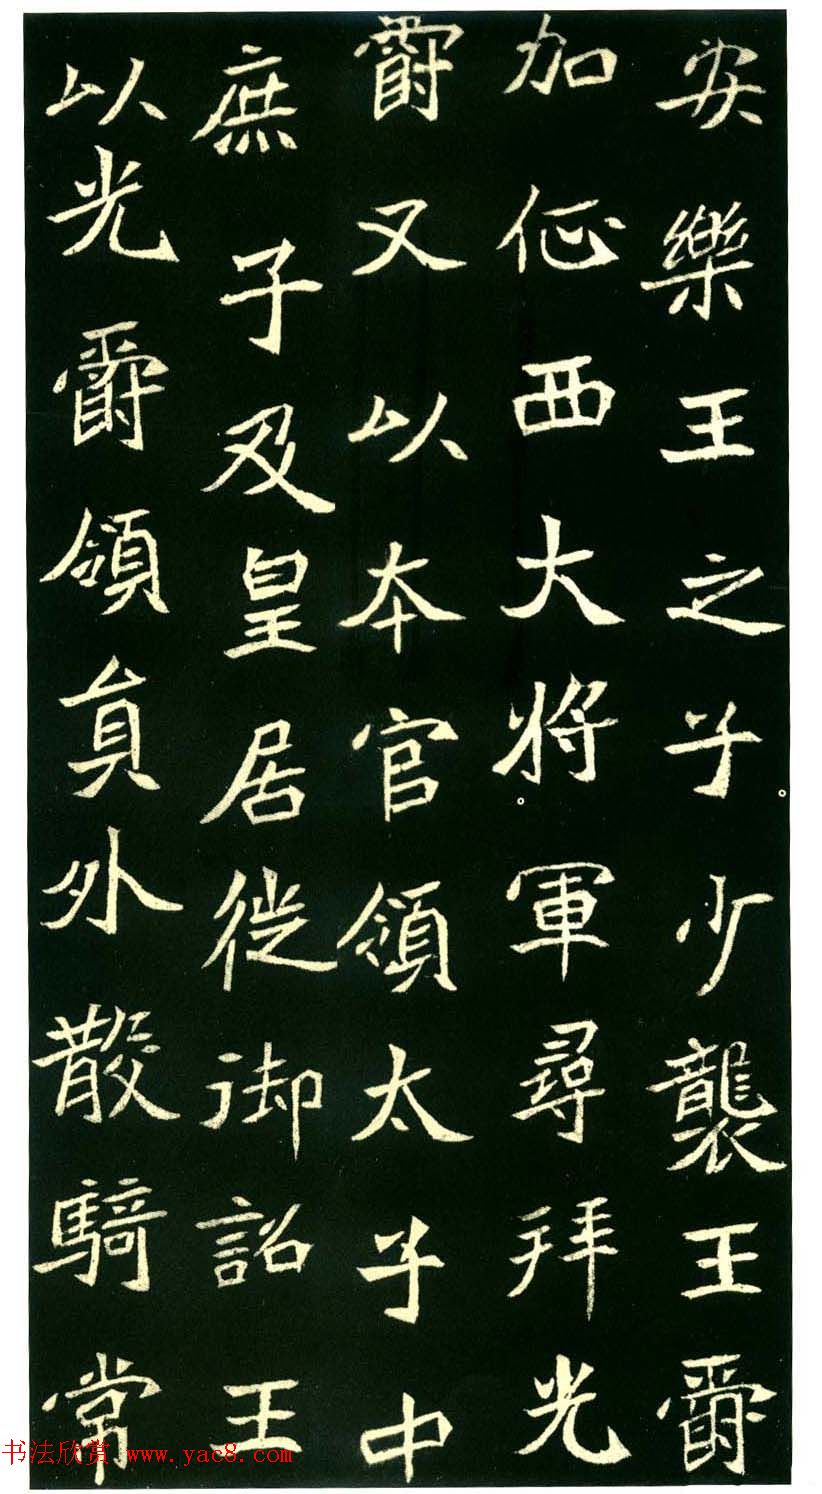 安樂王之子少襲王爵
加征西大將軍尋拜光
爵又以本官領太子中
庶子及皇居徙御詔王
以光爵領員外散騎常
书法欣赏 www.yac8.com